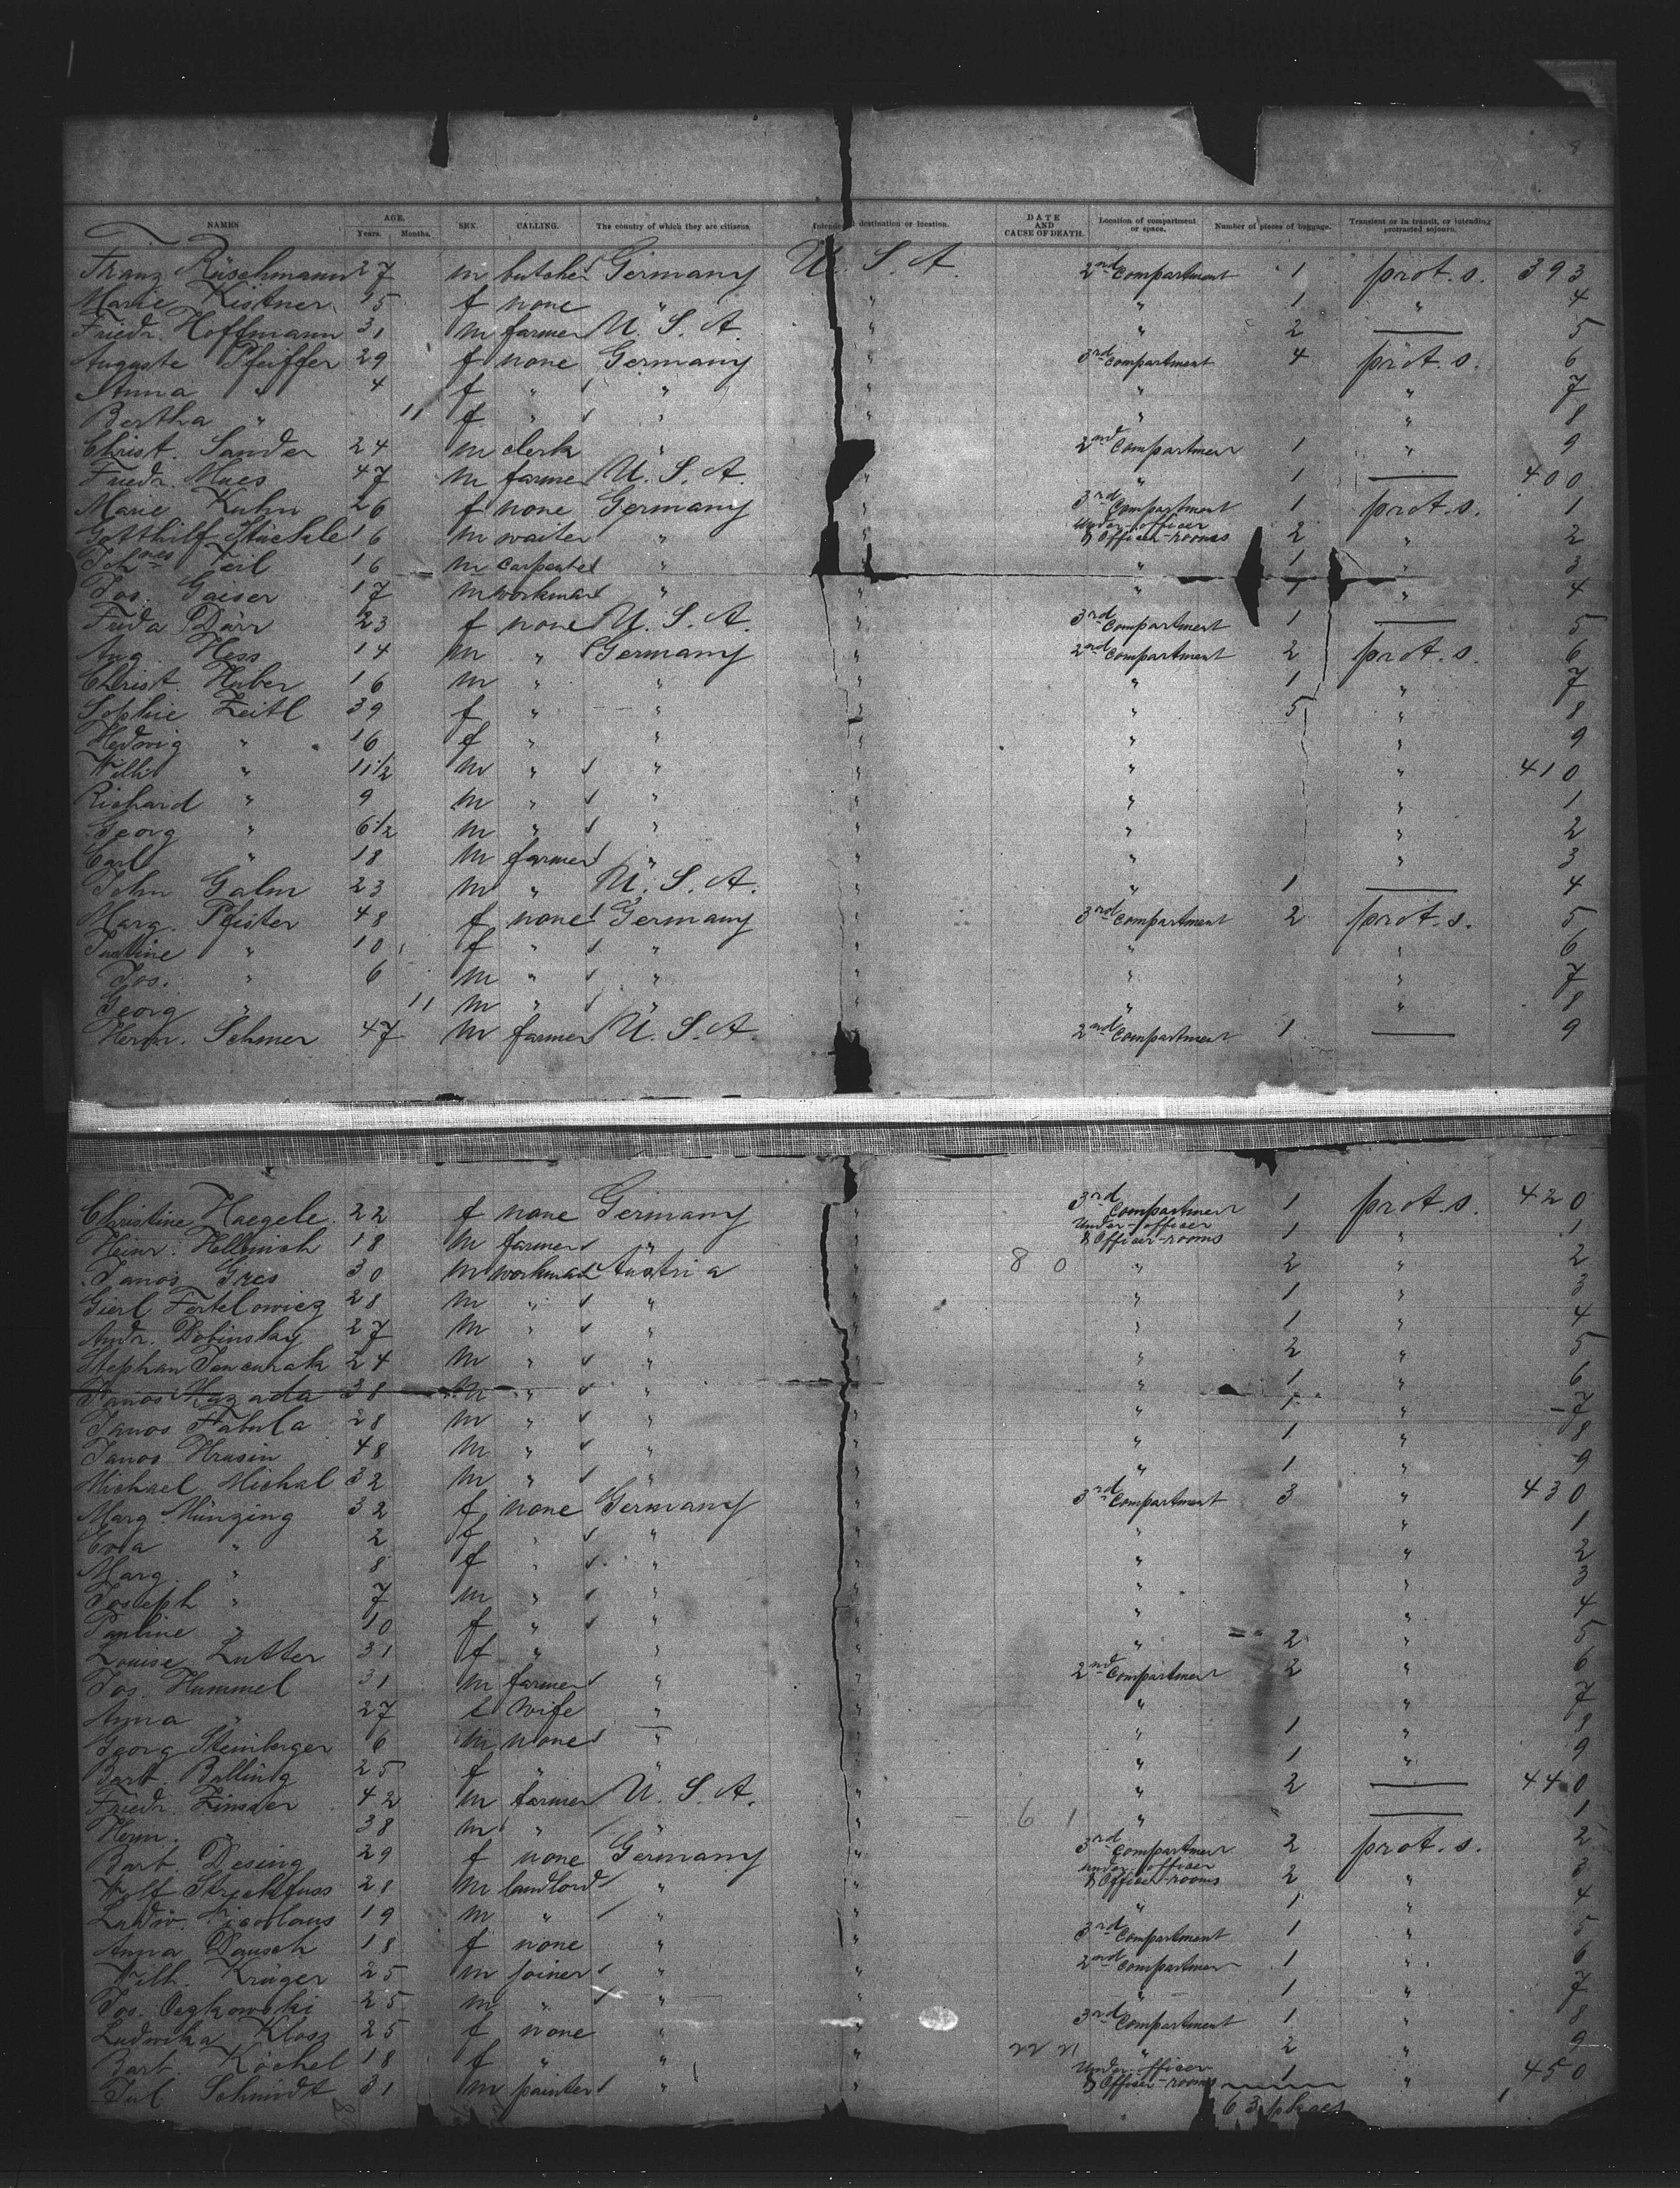 8
NAMES AGE. Years. Months. SEX. CALLING. The country of which they are citizens. Intended destination or location. DATE AND CAUSE OF DEATH. Location of compartment or space. Number of pieces of baggage. Transient or in transit, or intending protracted sojourn.
Franz Rüschmann 27 m butcher Germany U. S. A. 2nd Compartment 1 prot. s. 393
Marie Kistner 15 f none " " " 1 " 4
Friedr. Hoffmann 31 m farmer U. S. A. " " 2 — 5
Auguste Pfeiffer 29 f none Germany " 3rd Compartment 4 prot. s. 6
Anna " 4 f " " " " " 7
Bertha " 11 f " " " " " 8
Christ. Sander 24 m clerk " " 2nd Compartment 1 " 9
Friedr. Maes 47 m farmer U. S. A. " " 1 — 400
Marie Kuhn 26 f none Germany " 3rd Compartment 1 prot. s. 1
Gotthilf Stückle 16 m waiter " " Under-officer & Officer-rooms 2 " 2
Johnes Teil 16 m carpenter " " " 1 " 3
Jos. Gaiser 17 m workman " " " 1 " 4
Frida Dürr 23 f none U. S. A. " 3rd Compartment 1 — 5
Aug. Hess 14 m " Germany " 2nd Compartment 2 prot. s. 6
Christ. Huber 16 m " " " " 1 " 7
Sophie Zeitl 39 f " " " " 5 " 8
Hedwig " 16 f " " " " " 9
Willi " 11 1/2 m " " " " " 410
Richard " 9 m " " " " " 1
Georg " 6 1/2 m " " " " " 2
Carl " 18 m farmer " " " " 3
John Galm 23 m " U. S. A. " " 1 — 4
Marg. Pfister 48 f none Germany " 3rd Compartment 2 prot. s. 5
Justine " 10 f " " " " " 6
Jos. " 6 m " " " " " 7
Georg " 11 m " " " " " 8
Herm. Schmer 47 m farmer U. S. A. 2nd Compartment 1 — 9
Christine Haegele 22 f none Germany " 3rd Compartment 1 prot. s. 420
Heinr. Hellmich 18 m farmer " " Under-officer & Officer-rooms 1 " 1
Janos Gres 30 m workman Austria " 8 0 " 2 " 2
Gierl Fertelowicz 28 m " " " " 1 " 3
Andr. Dobinsky 27 m " " " " 1 " 4
Stephan Jencurak 24 m " " " " 2 " 5
Janos Mazada 38 m " " " " 1 " 6
Janos Fabula 28 m " " " " 1 " 7
Janos Hrusin 48 m " " " " 1 " 8
Michael Michal 32 m " " " " 1 " 9
Marg. Münzing 32 f none Germany " 3rd Compartment 3 " 430
Eva " 2 f " " " " 1
Marg. " 8 f " " " " " 2
Joseph " 7 m " " " " " 3
Pauline " 10 f " " " " " 4
Louise Lutter 31 f " " " " 2 " 5
Jos. Hummel 31 m farmer " " 2nd Compartment 2 " 6
Anna " 27 f wife " " " " 7
Georg Steinberger 6 m none " " " 1 " 8
Barb. Balling 25 f " " " " 1 " 9
Friedr. Zinsser 42 m farmer U. S. A. " " 2 — 440
Herm. " 38 m " " " 6 1 " — 1
Barb. Desing 29 f none Germany " 3rd Compartment 2 prot. s. 2
Wolf Streckfuss 28 m landlord " " Under-officer & Officer-rooms 2 " 3
Ludw. Nicolaus 19 m " " " " 1 " 4
Anna Dausch 18 f none " " 3rd Compartment 1 " 5
Wilh. Krüger 25 m joiner " " 2nd Compartment 1 " 6
Jos. Oczkowski 25 m " " " " 1 " 7
Ludwika Kloss 25 f none " " 3rd Compartment 1 " 8
Barb. Köchel 18 f " " " " 2 " 9
Jul. Schmidt 31 m painter " " Under-officer & Officer-rooms 1 " 450
63 pieces